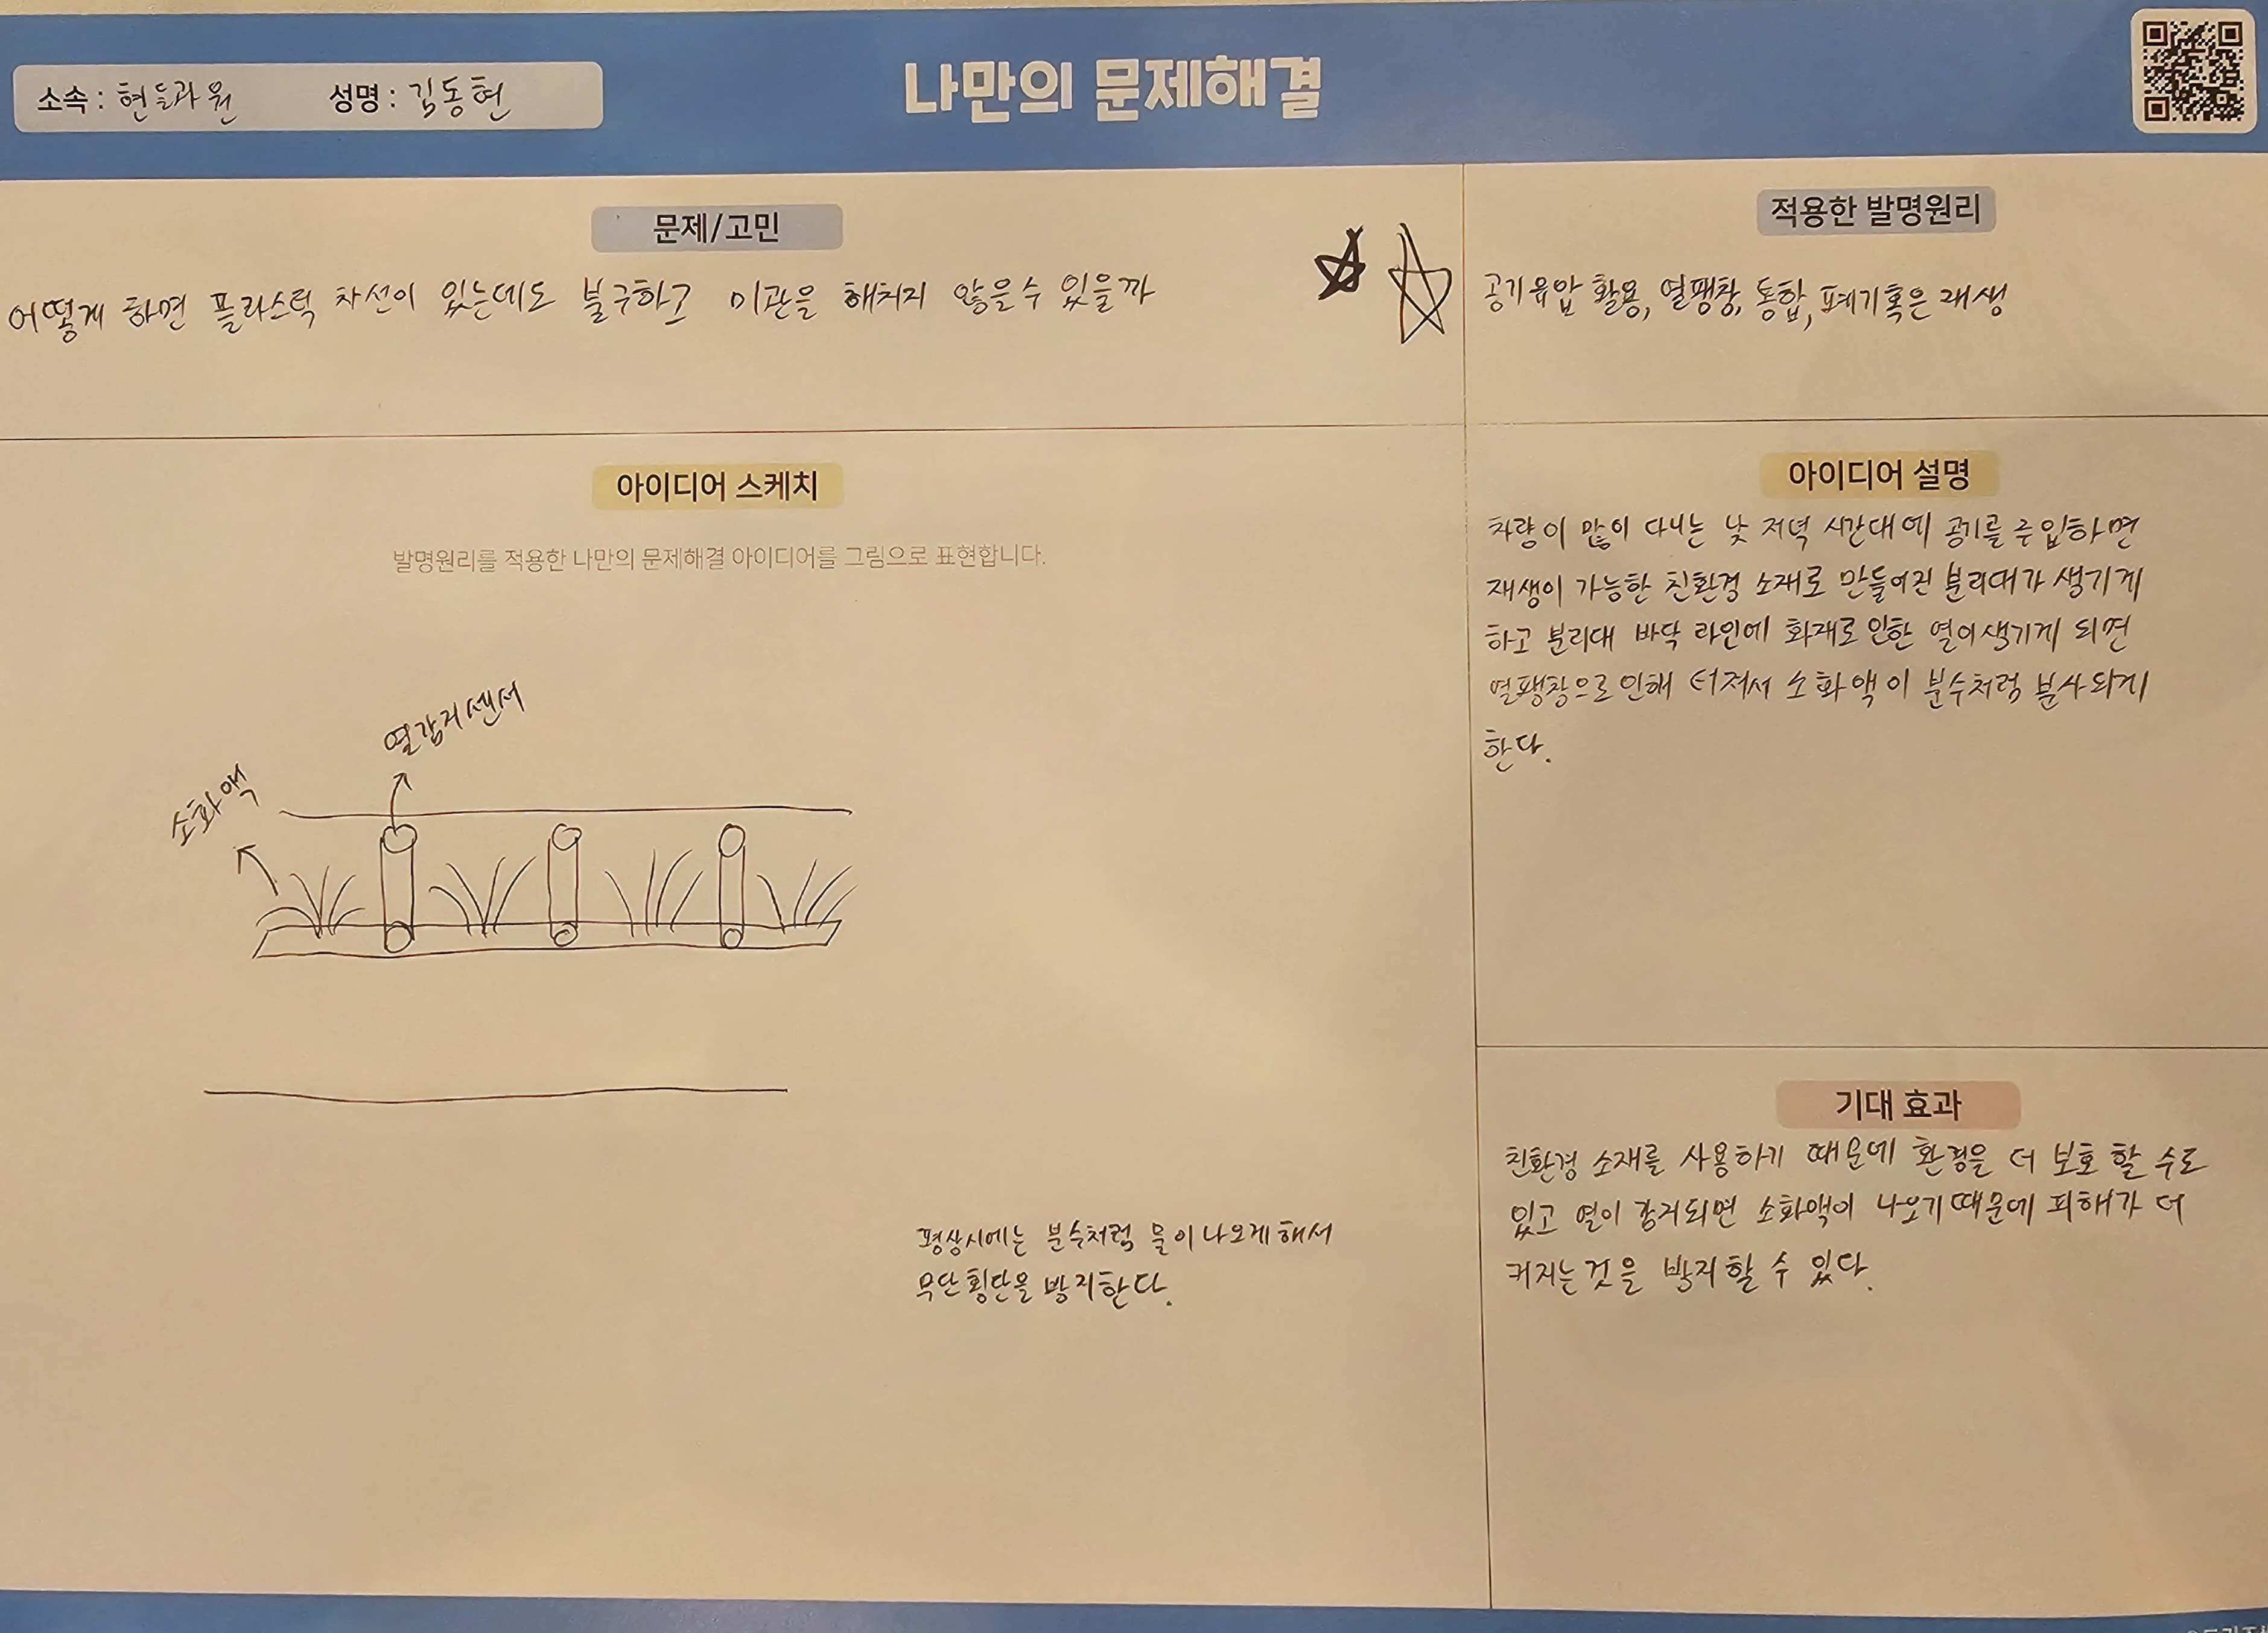 나만의 문제해결
소속 : 현들과원 성명 : 김동현
문제/고민
어떻게 하면 플라스틱 차선이 있는데도 불구하고 미관을 해치지 않을수 있을까
적용한 발명원리
공기유압 활용, 열팽창, 통합, 폐기혹은 재생
아이디어 스케치
발명원리를 적용한 나만의 문제해결 아이디어를 그림으로 표현합니다.
열감지센서
소화액
평상시에는 분수처럼 물이나오게해서
무단횡단을 방지한다.
아이디어 설명
차량이 많이 다니는 낮 저녁 시간대에 공기를 주입하면
재생이 가능한 친환경 소재로 만들어진 분리대가 생기게
하고 분리대 바닥 라인에 화재로 인한 열이생기게 되면
열팽창으로 인해 터져서 소화액이 분수처럼 분사되게
한다.
기대 효과
친환경 소재를 사용하기 때문에 환경을 더 보호 할 수도
있고 열이 감지되면 소화액이 나오기때문에 피해가 더
커지는 것을 방지할 수 있다.